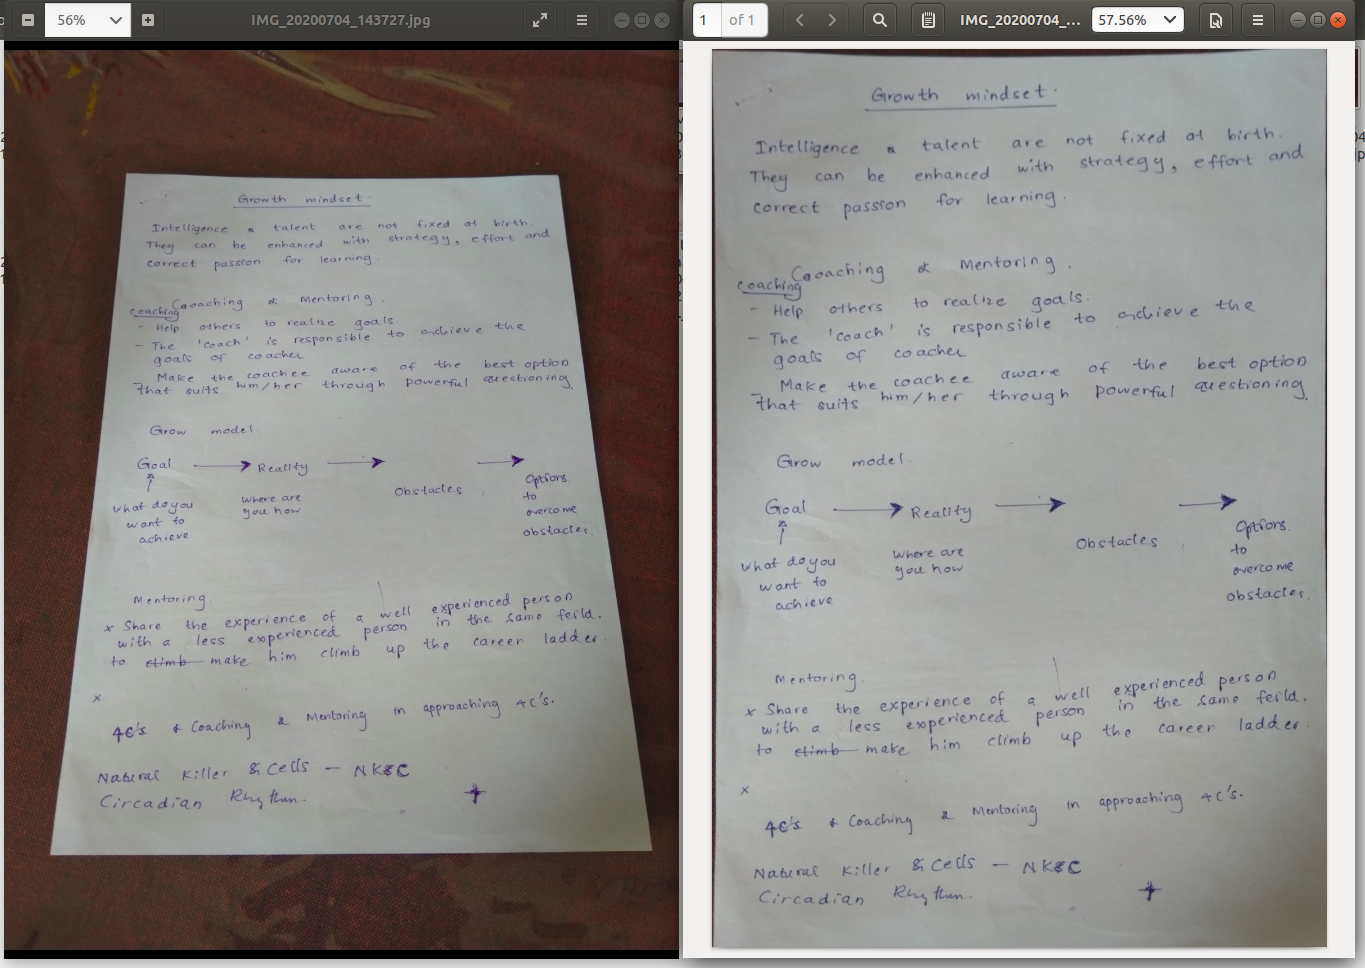 56%
IMG_20200704_143727.jpg
Growth mindset.
Intelligence & talent are not fixed at birth.
They can be enhanced with strategy, effort and
correct passion for learning.
Cooaching & Mentoring.
coaching
- Help others to realize goals.
- The 'coach' is responsible to achieve the
goals of coachee
- Make the coachee aware of the best option
that suits him/her through powerful questioning.
Grow model.
Goal Reality Obstacles Options
to
overcome
obstacles.
what do you
want to
achieve
where are
you now
Mentoring.
x Share the experience of a well experienced person
with a less experienced person in the same feild.
to climb make him climb up the career ladder.
x
4C's & Coaching & Mentoring in approaching 4C's.
Natural Killer & Cells - NK&C
Circadian Rhythm.
1 of 1
IMG_20200704_...
57.56%
Growth mindset.
Intelligence & talent are not fixed at birth.
They can be enhanced with strategy, effort and
correct passion for learning.
Cooaching & Mentoring.
coaching
- Help others to realize goals.
- The 'coach' is responsible to achieve the
goals of coachee
- Make the coachee aware of the best option
that suits him/her through powerful questioning.
Grow model.
Goal Reality Obstacles Options
to
overcome
obstacles.
what do you
want to
achieve
where are
you now
Mentoring.
x Share the experience of a well experienced person
with a less experienced person in the same feild.
to climb make him climb up the career ladder.
x
4C's & Coaching & Mentoring in approaching 4C's.
Natural Killer & Cells - NK&C
Circadian Rhythm.